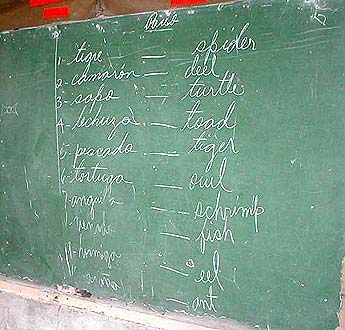 1- tigre — spider
2- camarón — deel
3- sapo — turtle
4- lechuza — toad
5- pescado — tiger
6- tortuga — owl
7- anguila — schrimp
venado — fish
hormiga — eel
araña — ant